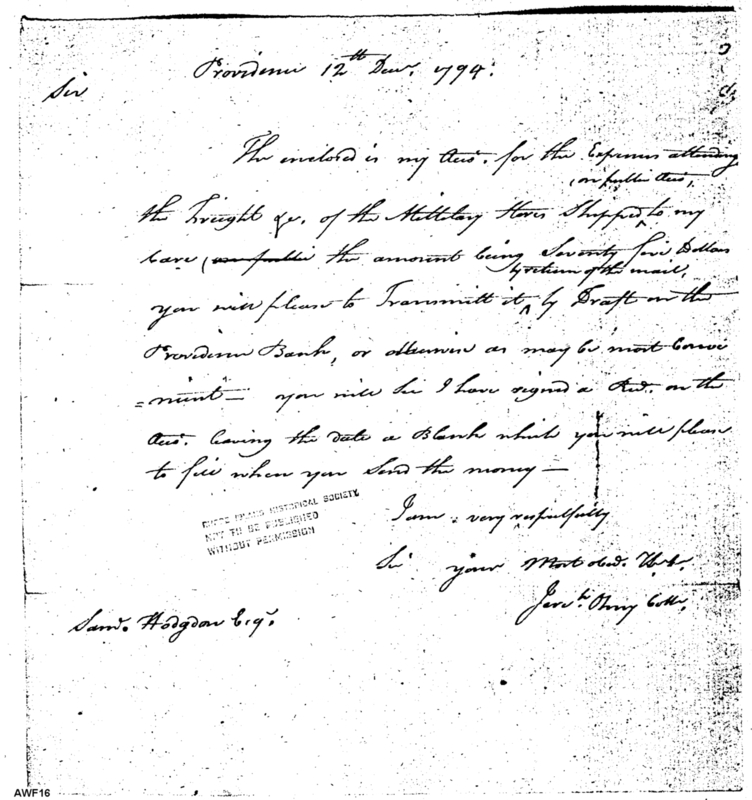 Providence 12th Decr. 1794.
Sir
The enclosed is my Acct. for the Expenses attending
(on public Acct,
the Freight &c. of the Millitary Stores Shipped to my
Care, (on public the amount being Seventy five Dollars
by return of the mail,
you will please to Transmitt it by Draft on the
Providence Bank, or otherwise as may be most Conve
=nient — you will See I have signed a Rect. on the
Acct. leaving the date a Blank which you will please
to fill when you Send the money —
RHODE ISLAND HISTORICAL SOCIETY
NOT TO BE PUBLISHED
WITHOUT PERMISSION
I am very respectfully
Sir your Most obed. Sert.
Jereh. Olney Collr.
Saml. Hodgdon Esqr.
AWF16